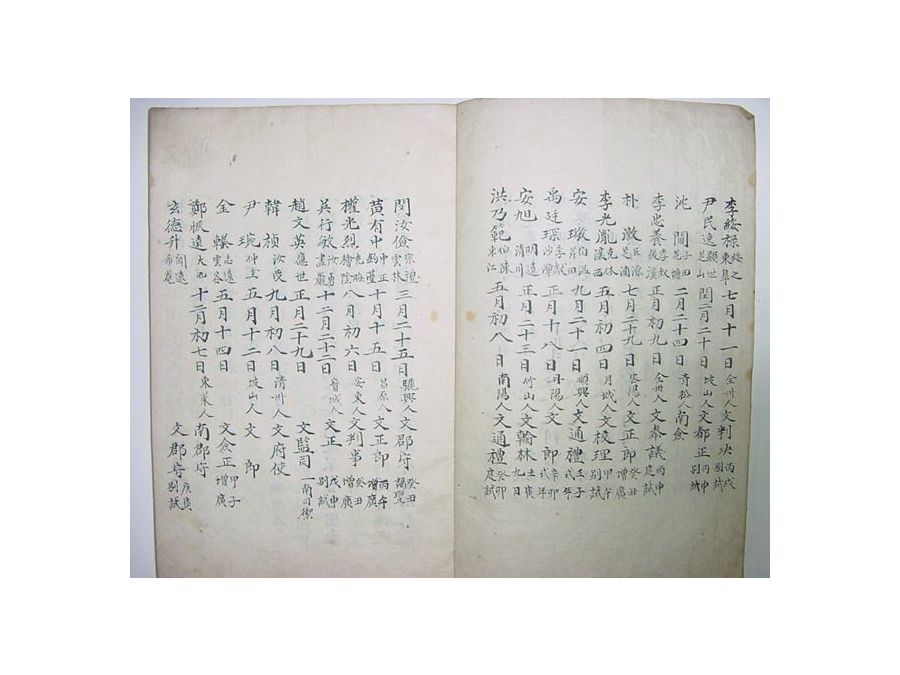 李綏祿綏之東皐七月十一日全州人文判決丙戌別試
尹民逸顯世芝山閏二月二十日坡山人文都正丙申別試
沈誾子四花塘二月二十四日青松人南僉
李忠養孝叔後溪正月初九日全州人文參議丙申庭試
朴澂巨源芝浦七月二十九日密陽人文正郎癸丑增廣
李光胤克休瀼西五月初四日月城人文校理甲午別試
安璥伯溫芹田九月二十一日順興人文通禮壬子式年
禹廷琛季獻沙源正月十八日丹陽人文郎辛卯式年
安旭明遠清川正月二十三日竹山人文翰林壬寅九日
洪乃範伯陳東江五月初八日南陽人文通禮癸卯庭試
閔汝儉宗禮雲林三月二十五日驪興人文郡守癸丑謁聖
黃有中中正釣隱十月十五日昌原人文正郎丙午增廣
權光烈克晦檜陰八月初六日安東人文判事癸丑增廣
吳行敏汝勇畫巖十二月二十二日寶城人文正戊申別試
趙文英應世正月二十九日文監司一南司禦
韓楨汝受九月初八日清州人文府使
尹琬仲圭五月十二日坡山人文郎
金轔志遠雲谷五月十四日文僉正甲子增廣
鄭振遠大而十二月初七日東萊人南郡守
玄德升聞遠希菴文郡守庚寅別試